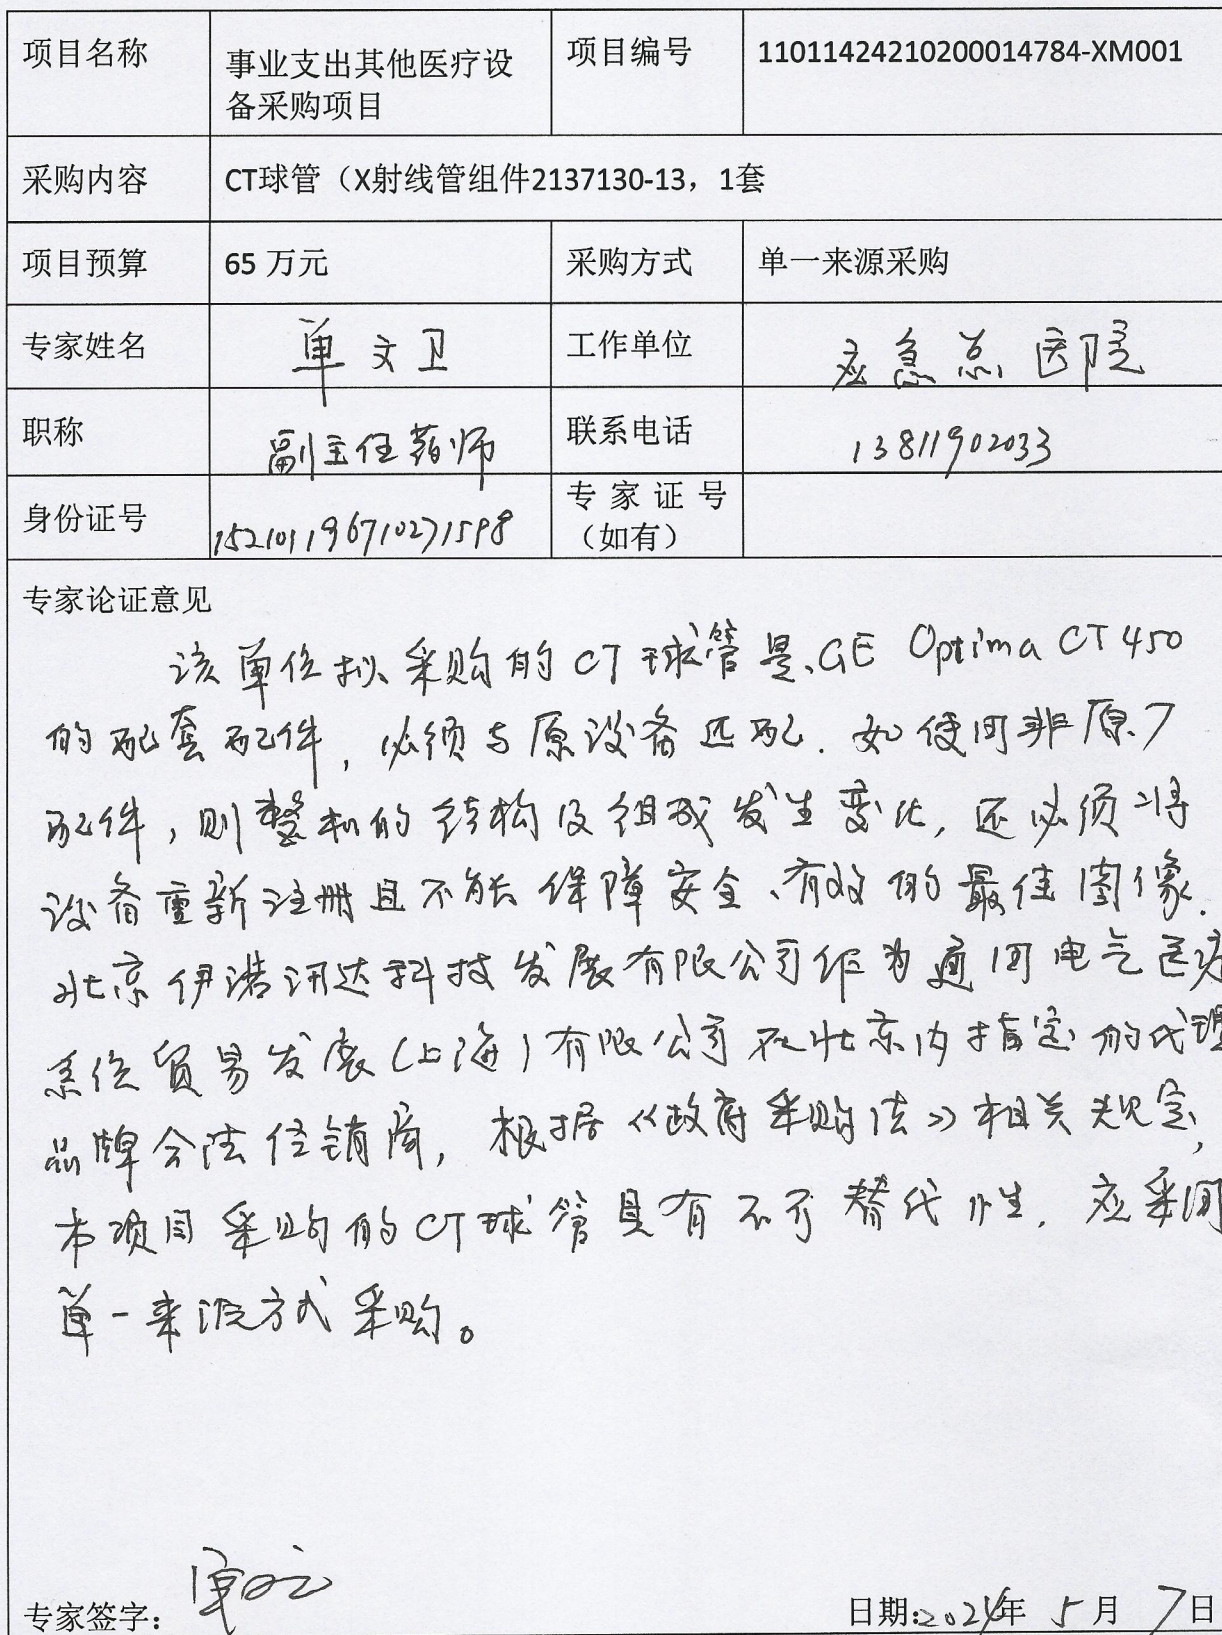 项目名称 事业支出其他医疗设 项目编号 11011424210200014784-XM001
备采购项目
采购内容 CT球管（X射线管组件2137130-13，1套
项目预算 65 万元 采购方式 单一来源采购
专家姓名 单文卫 工作单位 应急总医院
职称 副主任药师 联系电话 13811902033
身份证号 152101196710271598 专家证号
（如有）
专家论证意见
该单位拟采购的CT球管是GE Optima CT450
的配套配件，必须与原设备匹配.如使用非原厂
配件，则整机的结构及组成发生变化，还必须将
设备重新注册且不能保障安全、有效的最佳图像.
北京伊诺讯达科技发展有限公司作为通用电气医疗
系统贸易发展(上海)有限公司在北京内指定的代理
品牌合法经销商，根据《政府采购法》相关规定，
本项目采购的CT球管具有不可替代性，应采用
单一来源方式采购。
专家签字： 日期:2024年 5月 7日